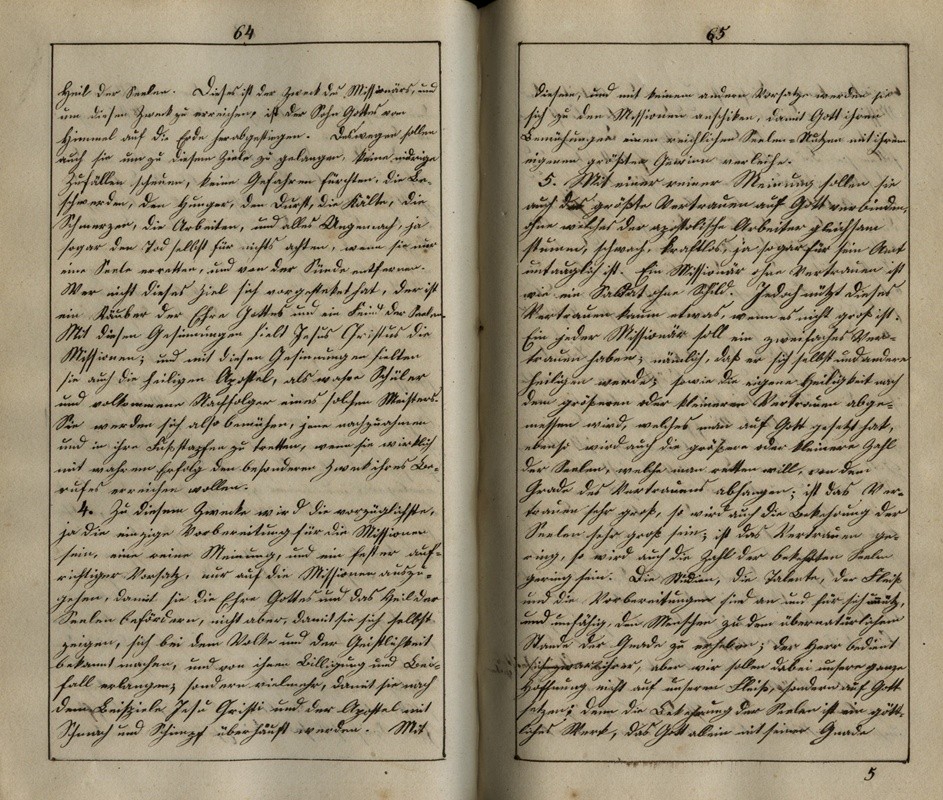 64
Heil der Seelen. Dieses ist der Zweck des Missionärs, und
um diesen Zweck zu erreichen, ist der Sohn Gottes vom
Himmel auf die Erde herabgestiegen. Deswegen sollen
auch sie um zu diesem Ziele zu gelangen, keine widrige
Zufällen scheuen, keine Gefahren fürchten, die Be-
schwerden, den Hunger, den Durst, die Kälte, die
Schmerzen, die Arbeiten, und alles Ungemach, ja
sogar den Tod selbst für nichts achten, wenn sie nur
eine Seele erretten, und von der Sünde entfernen.
Wer nicht dieses Ziel sich vorgesteket hat, der ist
ein Räuber der Ehre Gottes und ein Feind der Seelen.
Mit diesen Gesinnungen hielt Jesus Christus die
Missionen; und mit diesen Gesinnungen hielten
sie auch die heiligen Apostel, als wahre Schüler
und volkommene Nachfolger eines solchen Meisters.
Sie werden sich also bemühen, jene nachzuahmen
und in ihre Fußstapfen zu tretten, wenn sie wirklich
mit wahrem Erfolg den besonderen Zweck ihres Be-
rufes erreichen wollen.
4. Zu diesem Zwecke wird die vorzüglichste,
ja die einzige Vorbereitung für die Missionen
sein, eine reine Meinung, und ein fester auf-
richtiger Vorsatz, nur auf die Missionen auszu-
gehen, damit sie die Ehre Gottes und das Heil der
Seelen befördern, nicht aber, damit sie sich selbst
zeigen, sich bei dem Volke und der Geistlichkeit
bekannt machen, und von ihnen Billigung und Bei-
fall erlangen; sondern vielmehr, damit sie nach
dem Beispiele Jesu Christi und der Apostel mit
Schmach und Schimpf überhäuft werden. Mit
65
diesem, und mit keinem andern Vorsatze werden sie
sich zu den Missionen anschiken, damit Gott ihren
Bemühungen einen reichlichen Seelen-Nutzen mit ihrem
eigenen größten Gewinn verleihe.
5. Mit einer reiner Meinung sollen sie
auch das größte Vertrauen auf Gott verbinden,
ohne welches der apostolische Arbeiter gleichsam
stumm, schwach, kraftlos, ja sogar für sein Amt
untauglich ist. Ein Missionär ohne Vertrauen ist
wie ein Soldat ohne Schild. Jedoch nützt dieses
Vertrauen kaum etwas, wenn es nicht groß ist.
Ein jeder Missionär soll ein zweifaches Ver-
trauen haben; nämlich, daß er sich selbst und andere
heiligen werde; sowie die eigene Heiligkeit nach
dem größeren oder kleineren Vertrauen abge-
messen wird, welches man auf Gott gesetzt hat,
ebenso wird auch die größere oder kleinere Zahl
der Seelen, welche man retten will, von dem
Grade des Vertrauens abhangen; ist das Ver-
trauen sehr groß, so wird auch die Bekehrung der
Seelen sehr groß sein; ist das Vertrauen ge-
ring, so wird auch die Zahl der bekehrten Seelen
gering sein. Die Studien, die Talente, der Fleiß
und die Vorbereitungen sind an und für sich unnütz,
und unfähig, den Menschen zu dem übernatürlichen
Stande der Gnade zu erheben; der Herr bedient
sich zwar ihrer, aber wir sollen dabei unsere ganze
Hoffnung nicht auf unseren Fleiß, sondern auf Gott
setzen; denn die Bekehrung der Seelen ist ein gött-
liches Werk, das Gott allein mit seiner Gnade
5